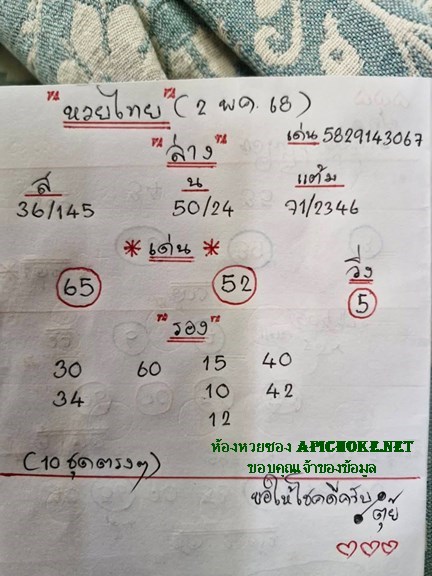 "หวยไทย" (2 พ.ค. 68)
เด่น 5829143067
"ล่าง"
ส น แต้ม
36/145 50/24 71/2346
* เด่น *
65 52 วิ่ง
5
"รอง"
30 60 15 40
34 10 42
12
ห้องหวยซอง APICHOKE.NET
ขอบคุณเจ้าของข้อมูล
(10 ชุดตรงๆ)
ขอให้โชคดีครับ
ตุ้ย